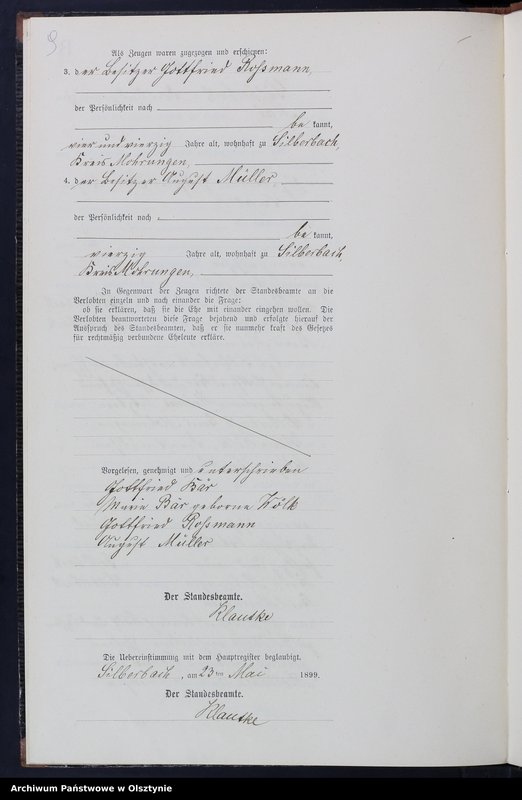 Als Zeugen waren zugezogen und erschienen:
3. der Besitzer Gottfried Roßmann,
der Persönlichkeit nach
be kannt,
vier und vierzig Jahre alt, wohnhaft zu Silberbach,
Kreis Mohrungen,
4. der Besitzer August Müller,
der Persönlichkeit nach
be kannt,
vierzig Jahre alt, wohnhaft zu Silberbach,
Kreis Mohrungen,
In Gegenwart der Zeugen richtete der Standesbeamte an die
Verlobten einzeln und nach einander die Frage:
ob sie erklären, daß sie die Ehe mit einander eingehen wollen. Die
Verlobten beantworteten diese Frage bejahend und erfolgte hierauf der
Ausspruch des Standesbeamten, daß er sie nunmehr kraft des Gesetzes
für rechtmäßig verbundene Eheleute erkläre.
Vorgelesen, genehmigt und unterschrieben
Gottfried Bär
Marie Bär geborne Wölk
Gottfried Roßmann
August Müller
Der Standesbeamte.
Klautke
Die Uebereinstimmung mit dem Hauptregister beglaubigt.
Silberbach, am 23 ten Mai 1899.
Der Standesbeamte.
Klautke
Archiwum Państwowe w Olsztynie